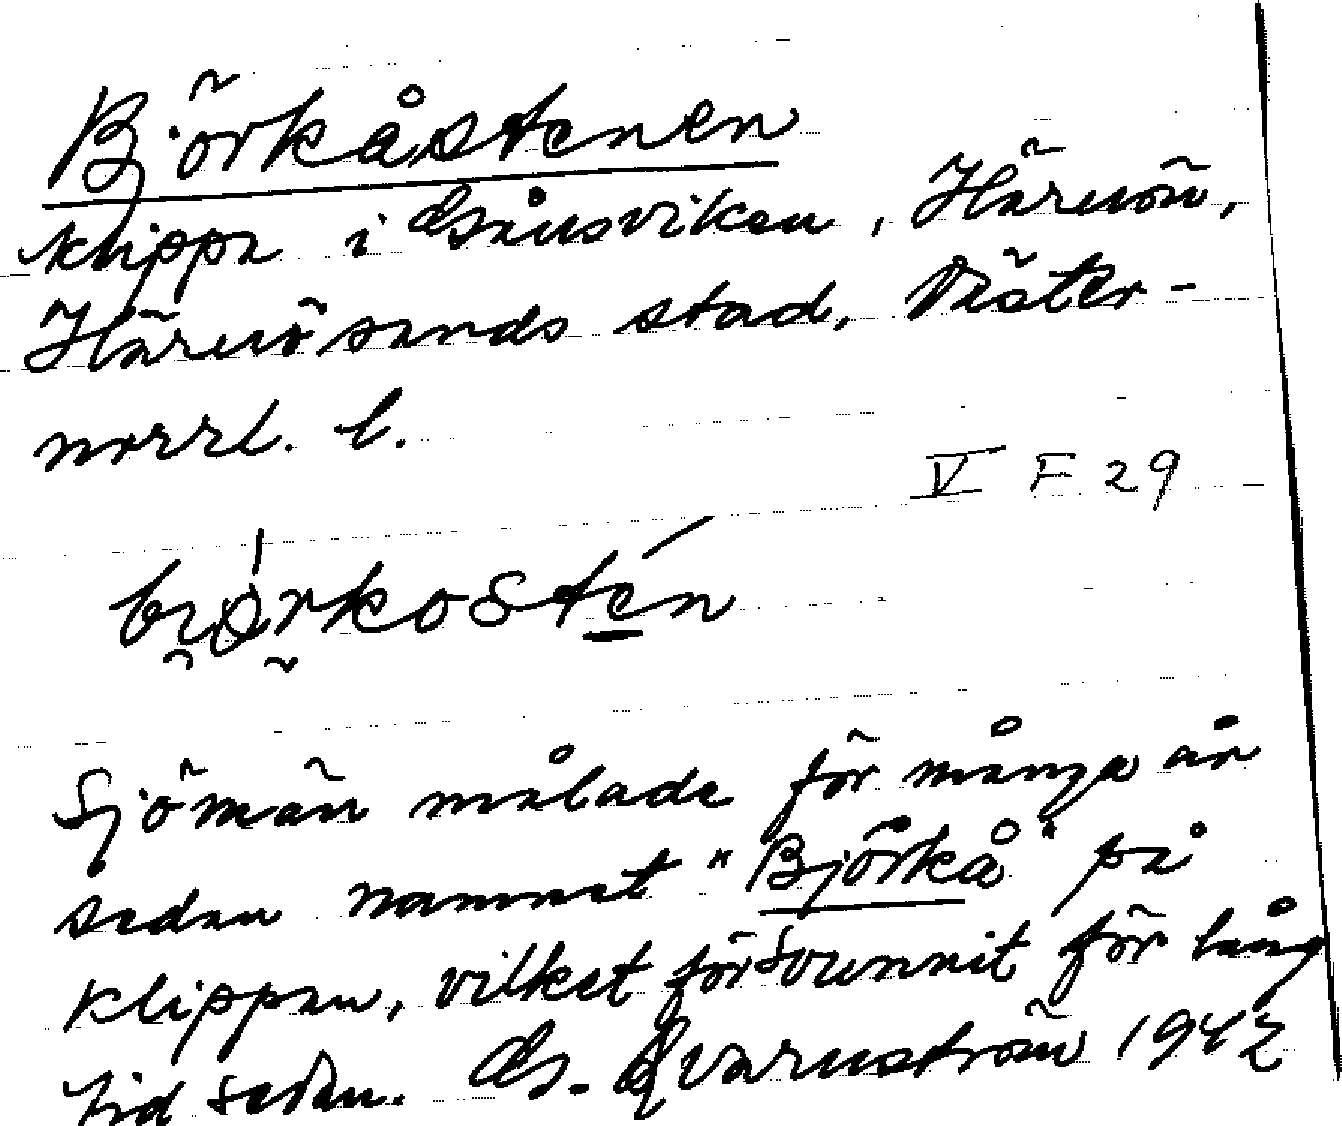 Björkåstenen
klippa i Gånsviken, Härnön,
Härnösands stad, Väster-
norrl. l.
V F 29
sjömän målade för många år
sedan namnet "Björkå" på
klippan, vilket försvunnit för lång
tid sedan. G. Qvarnström 1942